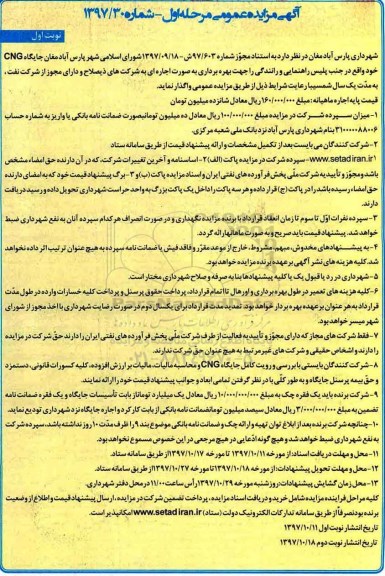 آگهی مزایده عمومی مرحله اول – شماره ۱۳۹۷/۳۰
نوبت اول
شهرداری پارس آباد مغان در نظر دارد به استناد مجوز شماره ۹۷/۶۰۳ش – ۱۳۹۷/۰۹/۱۸ شورای اسلامی شهر پارس آباد مغان جایگاه CNG
خود واقع در جنب پلیس راهنمایی و رانندگی را جهت بهره برداری به صورت اجاره ای به شرکت های ذیصلاح و دارای مجوز از شرکت نفت،
به مدت یک سال شمسی با رعایت شرایط ذیل از طریق مزایده عمومی واگذار نماید.
قیمت پایه اجاره ماهیانه: مبلغ ۱۶۰/۰۰۰/۰۰۰ ریال معادل شانزده میلیون تومان
۱– میزان سپرده شرکت در مزایده مبلغ ۱۰۰/۰۰۰/۰۰۰ ریال معادل ده میلیون تومان بصورت ضمانت نامه بانکی یا واریز به شماره حساب
۳۱۰۰۰۰۰۸۸۰۰۶ بنام شهرداری پارس آباد نزد بانک ملی شعبه مرکزی.
۲– شرکت کنندگان می بایست بعد از تکمیل مشخصات و ارائه پیشنهاد قیمت از طریق سامانه ستاد
www.setadiran.ir۱– سپرده شرکت در مزایده پاکت (الف) ۲– اساسنامه و آخرین تغییرات شرکت، که در آن دارنده حق امضاء مشخص
باشد و مجوز یا تأییدیه شرکت ملی پخش فرآورده های نفتی ایران و اسناد مزایده پاکت (ب) و ۳– برگ پیشنهادی قیمت خود که به امضای دارنده
حق امضاء رسیده باشد را در پاکت (ج) قرار داده و هر سه پاکت را داخل یک پاکت بزرگ به واحد حراست شهرداری تحویل داده و رسید دریافت
دارند.
۳– سپرده نفرات اول تا سوم تا زمان انعقاد قرارداد با برنده مزایده نگهداری و در صورت انصراف هر کدام سپرده آنان به نفع شهرداری ضبط
خواهد شد. پیشنهاد قیمت باید صریح و به صورت ماهانه ارائه گردد.
۴– به پیشنهادهای مخدوش، مبهم، مشروط، خارج از موعد مقرر و فاقد فیش یا ضمانت نامه سپرده به هیچ عنوان ترتیب اثر داده نخواهد
شد. کلیه هزینه های نشر آگهی بر عهده برنده مزایده خواهد بود.
۵– شهرداری در رد یا قبول یک یا کلیه پیشنهادها بنا به صرفه و صلاح شهرداری مختار است.
۶– کلیه هزینه های تعمیر در طول بهره برداری و اورهال تا اتمام قرارداد، پرداخت حقوق پرسنل و پرداخت کلیه خسارات وارده در طول مدت
قرارداد به هر عنوان بر عهده بهره بردار خواهد بود. تمدید مدت قرارداد برای یکسال دوم در صورت رضایت شهرداری با اخذ مجوز از شورای
شهر میسر خواهد بود.
۷– فقط شرکت های مجاز که دارای مجوز و تأییدیه فعالیت از طرف شرکت ملی پخش فرآورده های نفتی ایران را دارند حق شرکت در مزایده
را دارند و اشخاص حقیقی و شرکت های غیر مرتبط به هیچ عنوان حق شرکت ندارند.
۸– شرکت کنندگان بایستی با بررسی و رویت کامل جایگاه CNG و محاسبه مالیات، مالیات بر ارزش افزوده، کلیه کسورات قانونی، دستمزد
و حق بیمه پرسنل جایگاه و به طور کلی با در نظر گرفتن تمامی ابعاد و جوانب پیشنهاد قیمت خود را ارائه نمایند.
۹– شرکت برنده باید یک فقره چک به مبلغ ۱۰/۰۰۰/۰۰۰/۰۰۰ ریال معادل یک میلیارد تومان از بابت تأسیسات جایگاه و یک فقره ضمانت نامه
تضمین به مبلغ ۳/۰۰۰/۰۰۰/۰۰۰ ریال معادل سیصد میلیون تومان ضمانت نامه بانکی از بابت کار کرد و اجاره جایگاه نزد شهرداری تودیع نماید.
۱۰– چنانچه شرکت برنده بعد از ابلاغ توان تهیه و ارائه چک و ضمانت نامه بانکی موضوع بند ۹ را ظرف مدت ۱۰ روز نداشته باشد، سپرده شرکت
به نفع شهرداری ضبط خواهد شد و هیچ گونه ادعایی در هیچ مرجعی در این خصوص مسموع نخواهد بود.
۱۱– محل و مهلت دریافت اسناد: از مورخه ۱۳۹۷/۱۰/۱۱ تا مورخه ۱۳۹۷/۱۰/۱۷ از طریق سامانه ستاد.
۱۲– محل و مهلت تحویل پیشنهادات: از مورخه ۱۳۹۷/۱۰/۱۸ تا مورخه ۱۳۹۷/۱۰/۲۷ از طریق سامانه ستاد.
۱۳– محل زمان گشایش پیشنهادات: روز شنبه مورخه ۱۳۹۷/۱۰/۲۹ رأس ساعت ۱۱/۰۰ در محل دفتر شهرداری.
کلیه مراحل فرآیند مزایده شامل خرید و دریافت اسناد مزایده، پرداخت تضمین شرکت در مزایده، ارسال پیشنهاد قیمت و اطلاع از وضعیت
برنده بودن صرفاً از طریق سامانه تدارکات الکترونیک دولت (ستاد) www.setadiran.ir امکانپذیر است.
تاریخ انتشار نوبت اول ۱۳۹۷/۱۰/۱۱
تاریخ انتشار نوبت دوم ۱۳۹۷/۱۰/۱۸